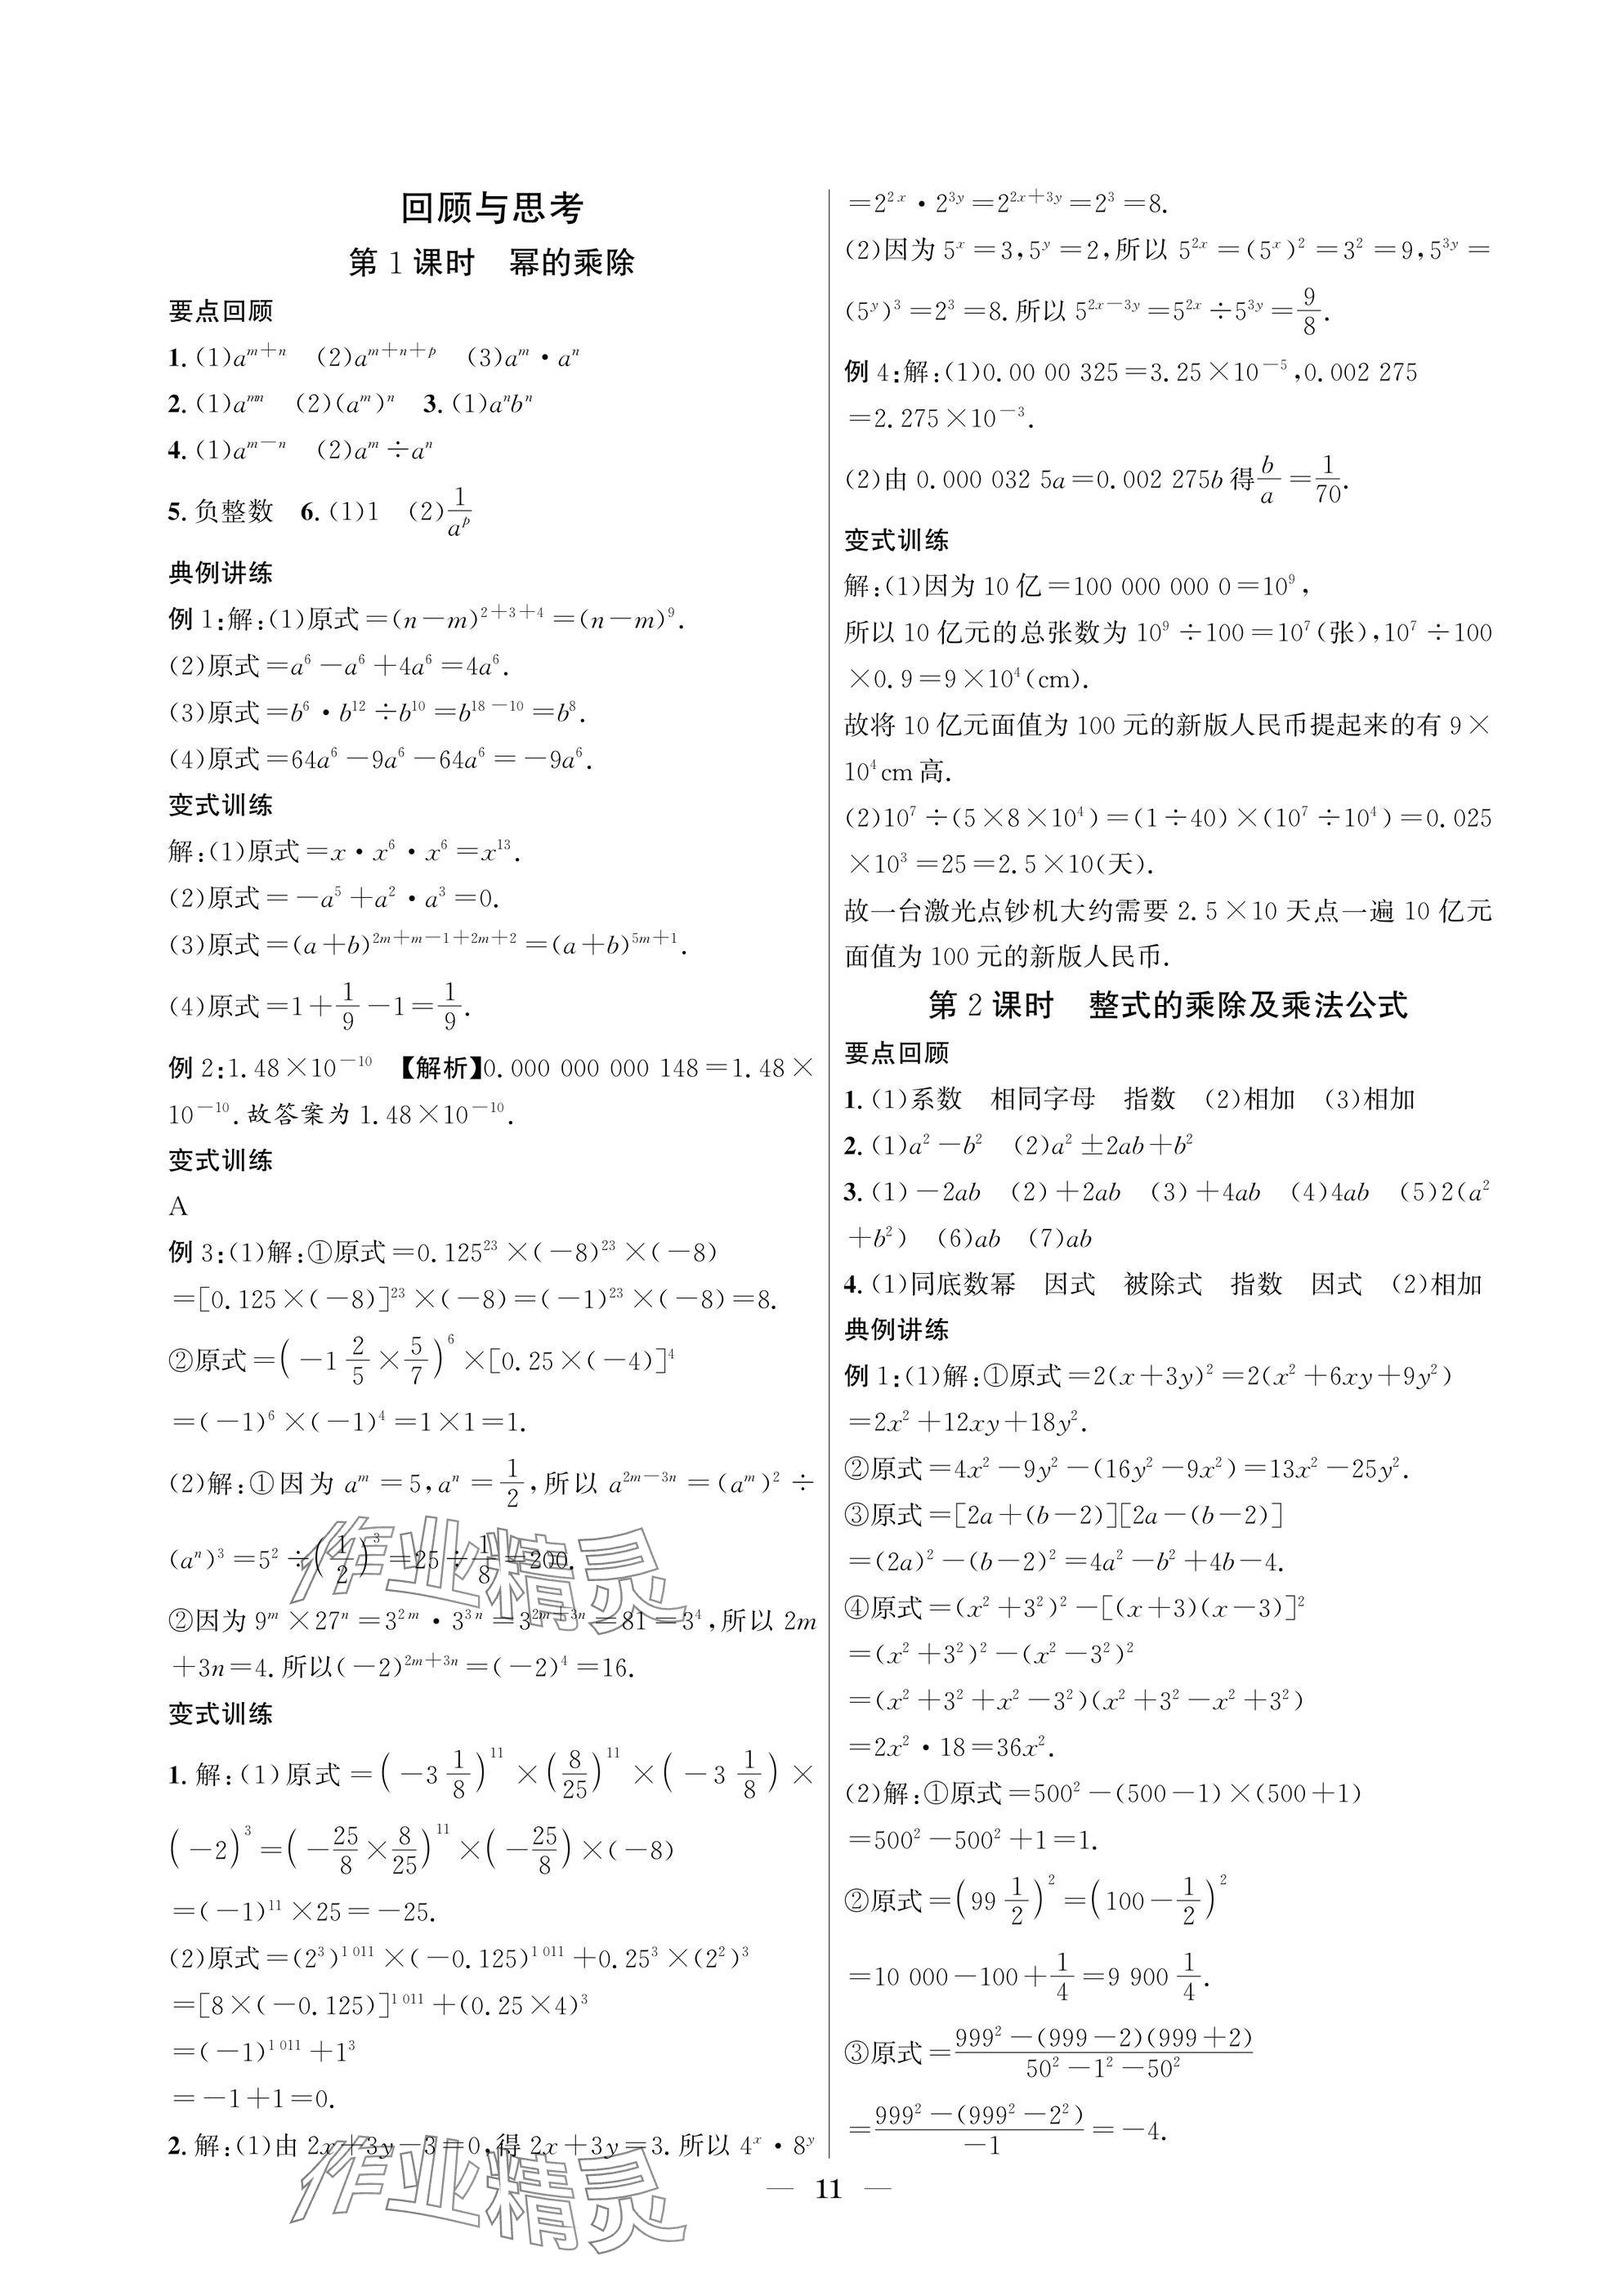 回顾与思考
第 1 课时　幂的乘除
要点回顾
1. (1)a^{m+n}　(2)a^{m+n+p}　(3)a^m·a^n
2. (1)a^{mn}　(2)(a^m)^n　3. (1)a^nb^n
4. (1)a^{m-n}　(2)a^m÷a^n
5. 负整数　6. (1)1　(2)\frac{1}{a^p}
典例讲练
例 1:解:(1)原式=(n-m)^{2+3+4}=(n-m)^9.
(2)原式=a^6-a^6+4a^6=4a^6.
(3)原式=b^6·b^{12}÷b^{10}=b^{18-10}=b^8.
(4)原式=64a^6-9a^6-64a^6=-9a^6.
变式训练
解:(1)原式=x·x^6·x^6=x^{13}.
(2)原式=-a^5+a^2·a^3=0.
(3)原式=(a+b)^{2m+m-1+2m+2}=(a+b)^{5m+1}.
(4)原式=1+\frac{1}{9}-1=\frac{1}{9}.
例 2:1.48×10^{-10}　【解析】0.000 000 000 148=1.48×
10^{-10}.故答案为 1.48×10^{-10}.
变式训练
A
例 3:(1)解:①原式=0.125^{23}×(-8)^{23}×(-8)
=[0.125×(-8)]^{23}×(-8)=(-1)^{23}×(-8)=8.
②原式=(-1\frac{2}{5}×\frac{5}{7})^6×[0.25×(-4)]^4
=(-1)^6×(-1)^4=1×1=1.
(2)解:①因为 a^m=5,a^n=\frac{1}{2},所以 a^{2m-3n}=(a^m)^2÷
(a^n)^3=5^2÷(\frac{1}{2})^3=25÷\frac{1}{8}=200.
②因为 9^m×27^n=3^{2m}·3^{3n}=3^{2m+3n}=81=3^4,所以 2m
+3n=4.所以(-2)^{2m+3n}=(-2)^4=16.
变式训练
1. 解:(1)原式=(-3\frac{1}{8})^{11}×(\frac{8}{25})^{11}×(-3\frac{1}{8})×
(-2)^3=(-\frac{25}{8}×\frac{8}{25})^{11}×(-\frac{25}{8})×(-8)
=(-1)^{11}×25=-25.
(2)原式=(2^3)^{1 011}×(-0.125)^{1 011}+0.25^3×(2^2)^3
=[8×(-0.125)]^{1 011}+(0.25×4)^3
=(-1)^{1 011}+1^3
=-1+1=0.
2. 解:(1)由 2x+3y-3=0,得 2x+3y=3.所以 4^x·8^y
=2^{2x}·2^{3y}=2^{2x+3y}=2^3=8.
(2)因为 5^x=3,5^y=2,所以 5^{2x}=(5^x)^2=3^2=9,5^{3y}=
(5^y)^3=2^3=8.所以 5^{2x-3y}=5^{2x}÷5^{3y}=\frac{9}{8}.
例 4:解:(1)0.00 00 325=3.25×10^{-5},0.002 275
=2.275×10^{-3}.
(2)由 0.000 032 5a=0.002 275b 得\frac{b}{a}=\frac{1}{70}.
变式训练
解:(1)因为 10 亿=100 000 000 0=10^9,
所以 10 亿元的总张数为 10^9÷100=10^7(张),10^7÷100
×0.9=9×10^4(cm).
故将 10 亿元面值为 100 元的新版人民币提起来的有 9×
10^4cm 高.
(2)10^7÷(5×8×10^4)=(1÷40)×(10^7÷10^4)=0.025
×10^3=25=2.5×10(天).
故一台激光点钞机大约需要 2.5×10 天点一遍 10 亿元
面值为 100 元的新版人民币.
第 2 课时　整式的乘除及乘法公式
要点回顾
1. (1)系数　相同字母　指数　(2)相加　(3)相加
2. (1)a^2-b^2　(2)a^2±2ab+b^2
3. (1)-2ab　(2)+2ab　(3)+4ab　(4)4ab　(5)2(a^2
+b^2)　(6)ab　(7)ab
4. (1)同底数幂　因式　被除式　指数　因式　(2)相加
典例讲练
例 1:(1)解:①原式=2(x+3y)^2=2(x^2+6xy+9y^2)
=2x^2+12xy+18y^2.
②原式=4x^2-9y^2-(16y^2-9x^2)=13x^2-25y^2.
③原式=[2a+(b-2)][2a-(b-2)]
=(2a)^2-(b-2)^2=4a^2-b^2+4b-4.
④原式=(x^2+3^2)^2-[(x+3)(x-3)]^2
=(x^2+3^2)^2-(x^2-3^2)^2
=(x^2+3^2+x^2-3^2)(x^2+3^2-x^2+3^2)
=2x^2·18=36x^2.
(2)解:①原式=500^2-(500-1)×(500+1)
=500^2-500^2+1=1.
②原式=(99\frac{1}{2})^2=(100-\frac{1}{2})^2
=10 000-100+\frac{1}{4}=9 900\frac{1}{4}.
③原式=\frac{999^2-(999-2)(999+2)}{50^2-1^2-50^2}
=\frac{999^2-(999^2-2^2)}{-1}=-4.
— 11 —
作业精灵
作业精灵